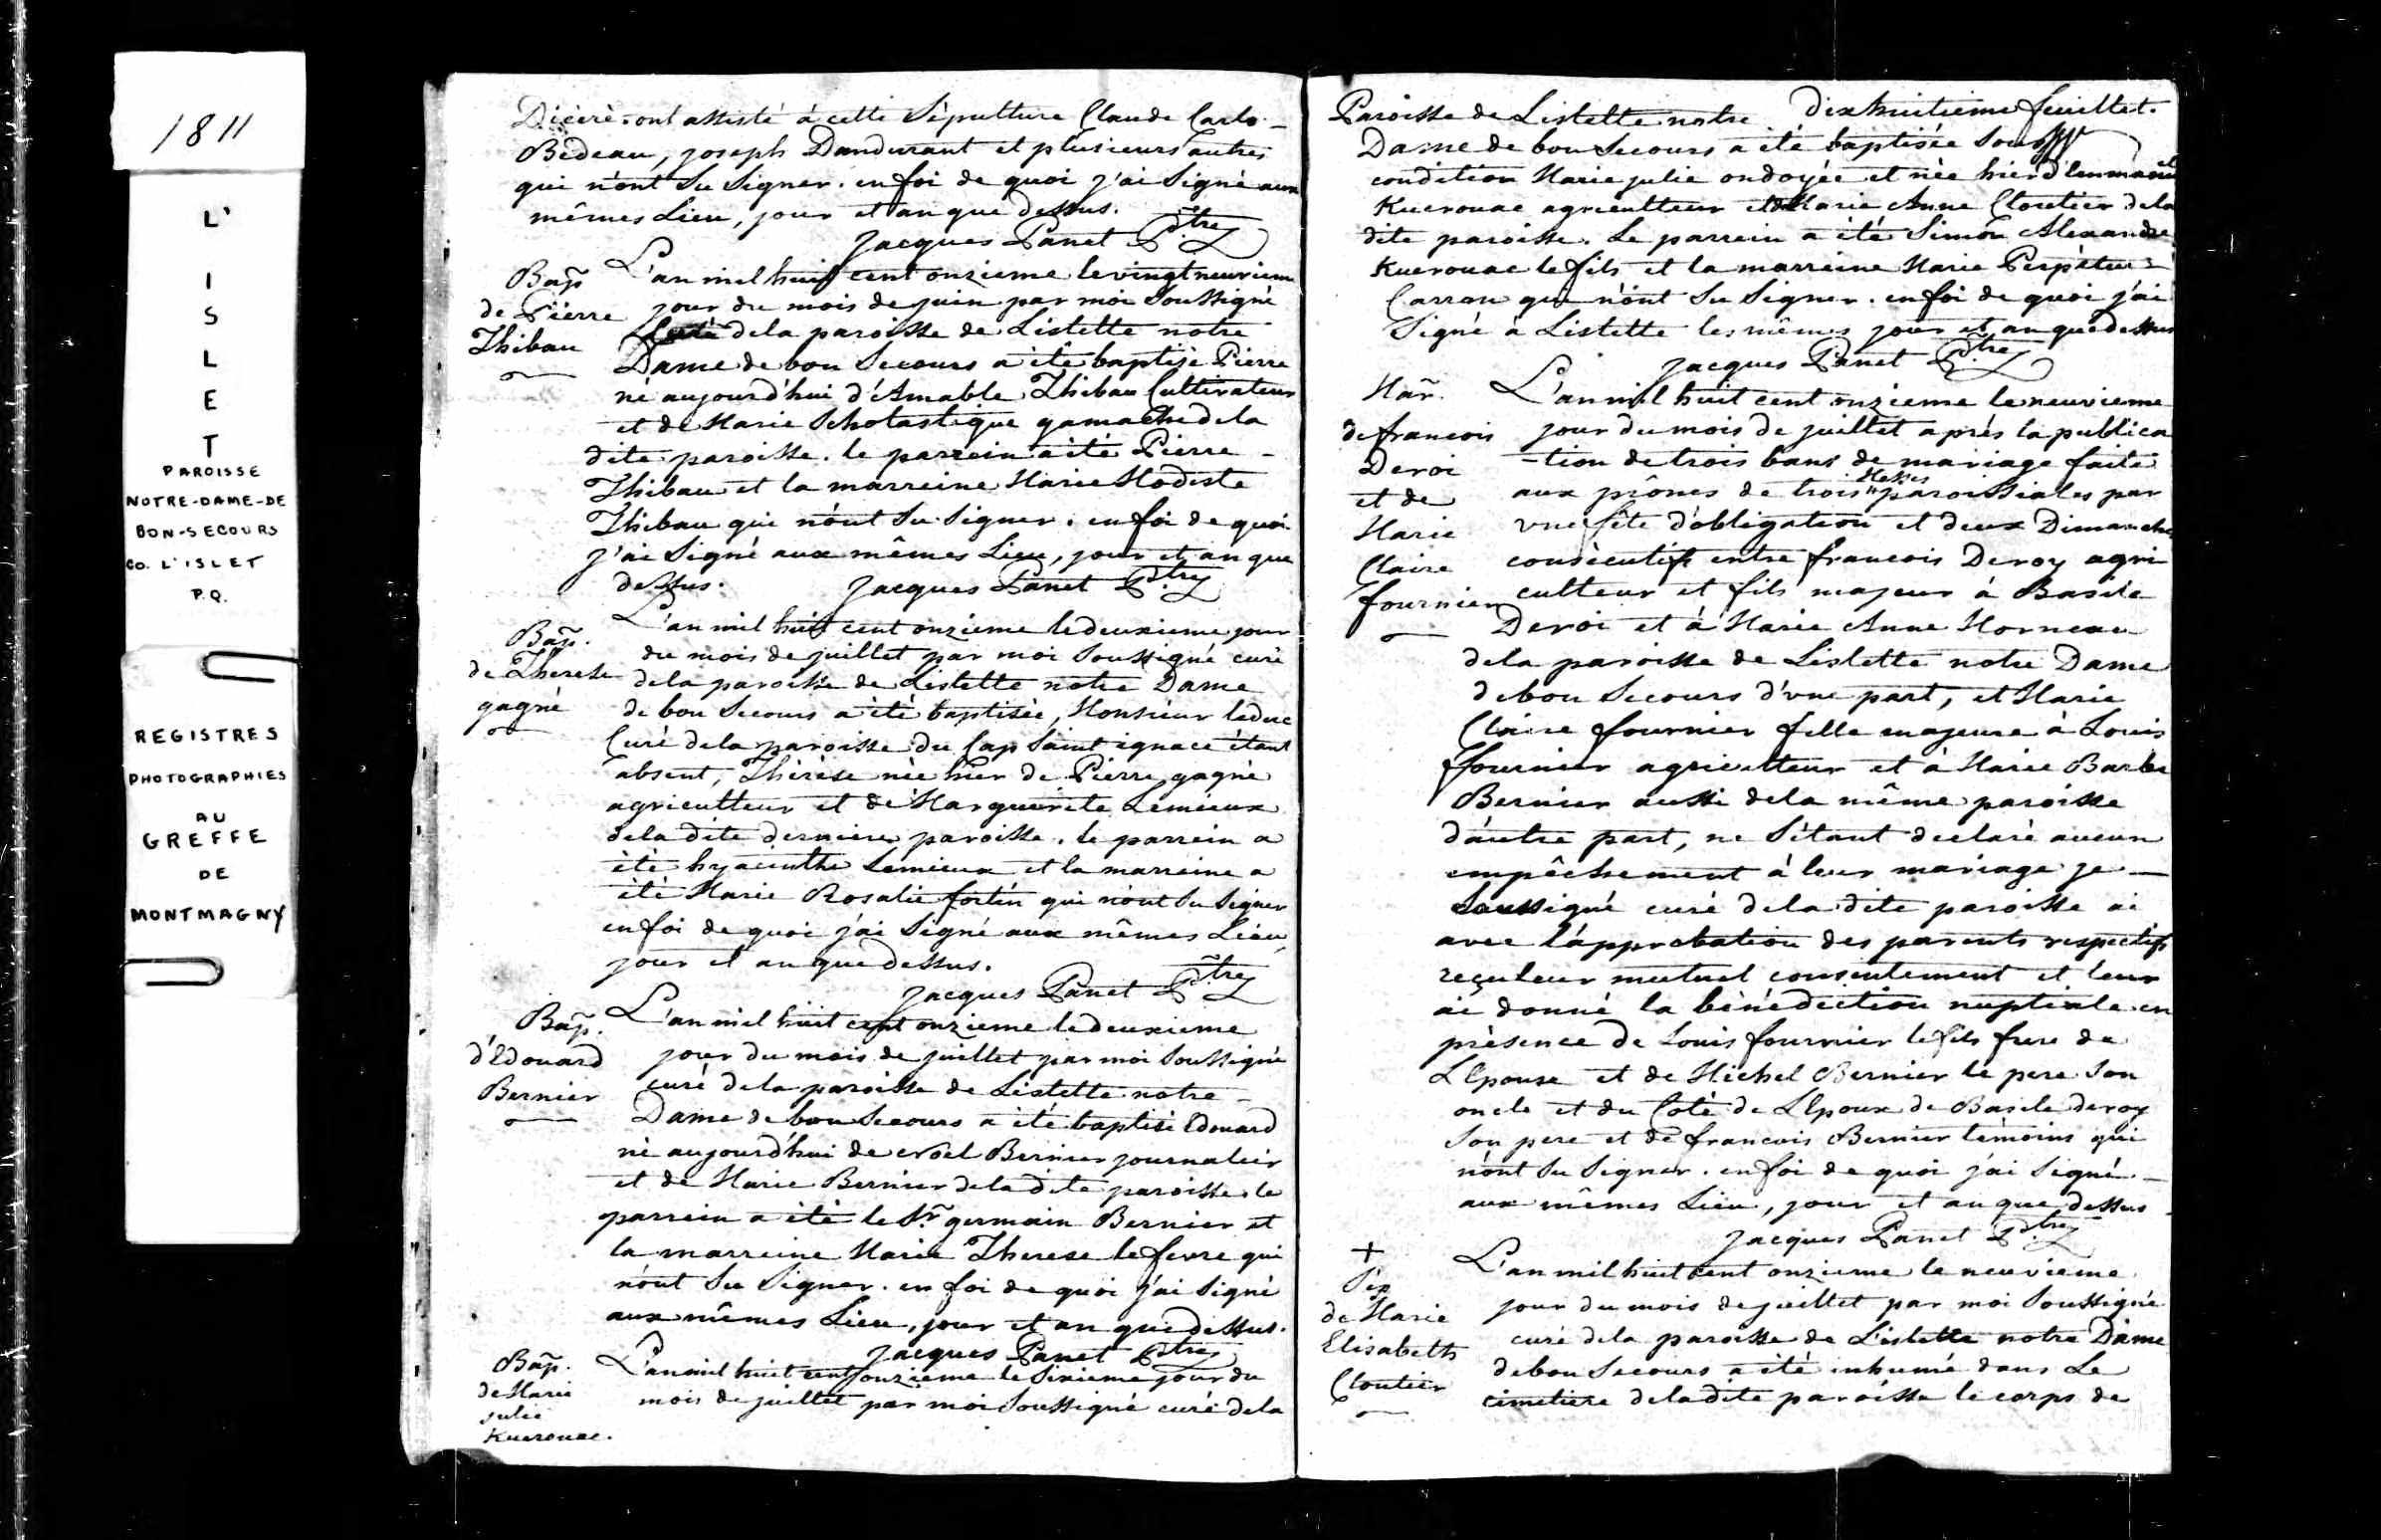 1811
L'
I
S
L
E
T
PAROISSE
NOTRE-DAME-DE
BON-SECOURS
CO. L'ISLET
P.Q.
REGISTRES
PHOTOGRAPHIES
AU
GREFFE
DE
MONTMAGNY
ont assisté à cette Sépulture Claude Carlo
Bedeau, joseph Dandurant et plusieurs autres
qui n'ont Su Signer. en foi de quoi j'ai Signé aux
mêmes Lieu, jour et an que dessus.
Jacques Panet Ptre
Bap
de Pierre
Thibau
L'an mil huit cent onzieme le vingt neuvieme
jour du mois de juin par moi Soussigné
Curé dela paroisse de Lislette notre
Dame de bon Secours a été baptisé Pierre
né aujourd'hui d'Amable Thibau Cultivateur
et de Marie Scholastique gamache dela
dite paroisse. le parrein a été Pierre
Thibau et la marreine Marie Modeste
Thibau qui n'ont Su Signer. en foi de quoi
j'ai Signé aux mêmes Lieu, jour et an que
dessus. Jacques Panet Ptre
Bap.
de Therese
gagné
L'an mil huit cent onzieme le deuxieme jour
du mois de juillet par moi Soussigné curé
dela paroisse de Lislette notre Dame
de bon Secours a été baptisée, Monsieur leduc
Curé dela paroisse du Cap Saint ignace étant
absent, Thérèse née hier de Pierre gagné
agriculteur et de Marguerite Lemieux
dela dite derniere paroisse. le parrein a
été hyacinthe Lemieux et la marreine a
été Marie Rosalie fortin qui n'ont Su Signer
en foi de quoi j'ai Signé aux mêmes Lieu,
jour et an que dessus.
Jacques Panet Ptre
Bap.
d'Edouard
Bernier
L'an mil huit cent onzieme le deuxieme
jour du mois de juillet par moi Soussigné
curé dela paroisse de Lislette notre
Dame de bon Secours a été baptisé Edouard
né aujourd'hui de Bernier journalier
et de Marie Bernier dela dite paroisse le
parrein a été le Sr. germain Bernier et
la marreine Marie Therese lefevre qui
n'ont Su Signer. en foi de quoi j'ai Signé
aux mêmes Lieu, jour et an que dessus.
Jacques Panet Ptre
Bap.
de Marie
julie
Kuerouac.
L'an mil huit cent onzieme le Sixieme jour du
mois de juillet par moi Soussigné curé dela
Paroisse de Lislette notre Dixhuitieme feuillet.
Dame de bon Secours a été baptisée Sous
condition Marie julie ondoyée et née hier d'Emmanuel
Kuerouac agriculteur et de Marie Anne Cloutier dela
dite paroisse. Le parrein a été Simon Alexandre
Kuerouac le fils et la marreine Marie Perpétue
Carron qui n'ont Su Signer. en foi de quoi j'ai
Signé à Lislette les mêmes jour et an que dessus
Jacques Panet Ptre
Mar.
de francois
Deroi
et de
Marie
Claire
fournier
L'an mil huit cent onzieme le neuvieme
jour du mois de juillet après la publica
-tion de trois bans de mariage faite
aux prônes de trois Messes paroissiales par
vne fête d'obligation et deux Dimanches
consécutifs entre francois Deroy agri
culteur et fils majeur à Basile
Deroi et à Marie Anne Morneau
dela paroisse de Lislette notre Dame
de bon Secours d'vne part, et Marie
Claire fournier fille majeure à Louis
fournier agriculteur et à Marie Barbe
Bernier aussi dela même paroisse
d'autre part, ne S'étant declaré aucun
empêchement à leur mariage je
Soussigné curé dela dite paroisse ai
avec l'approbation des parents respectifs
reçu leur mutuel consentement et leur
ai donné la bénédiction nuptiale en
présence de Louis fournier le fils frere de
L'Epouse et de Michel Bernier le pere Son
oncle et du Coté de L'Epoux de Basile deroy
Son pere et de francois Bernier témoins qui
n'ont Su Signer. en foi de quoi j'ai Signé
aux mêmes Lieu, jour et an que dessus
Jacques Panet Ptre
+
Sep
de Marie
Elisabeth
Cloutier
L'an mil huit cent onzieme le neuvieme
jour du mois de juillet par moi Soussigné
curé dela paroisse de Lislette notre Dame
de bon Secours a été inhumé dans Le
cimetiere dela dite paroisse le corps de